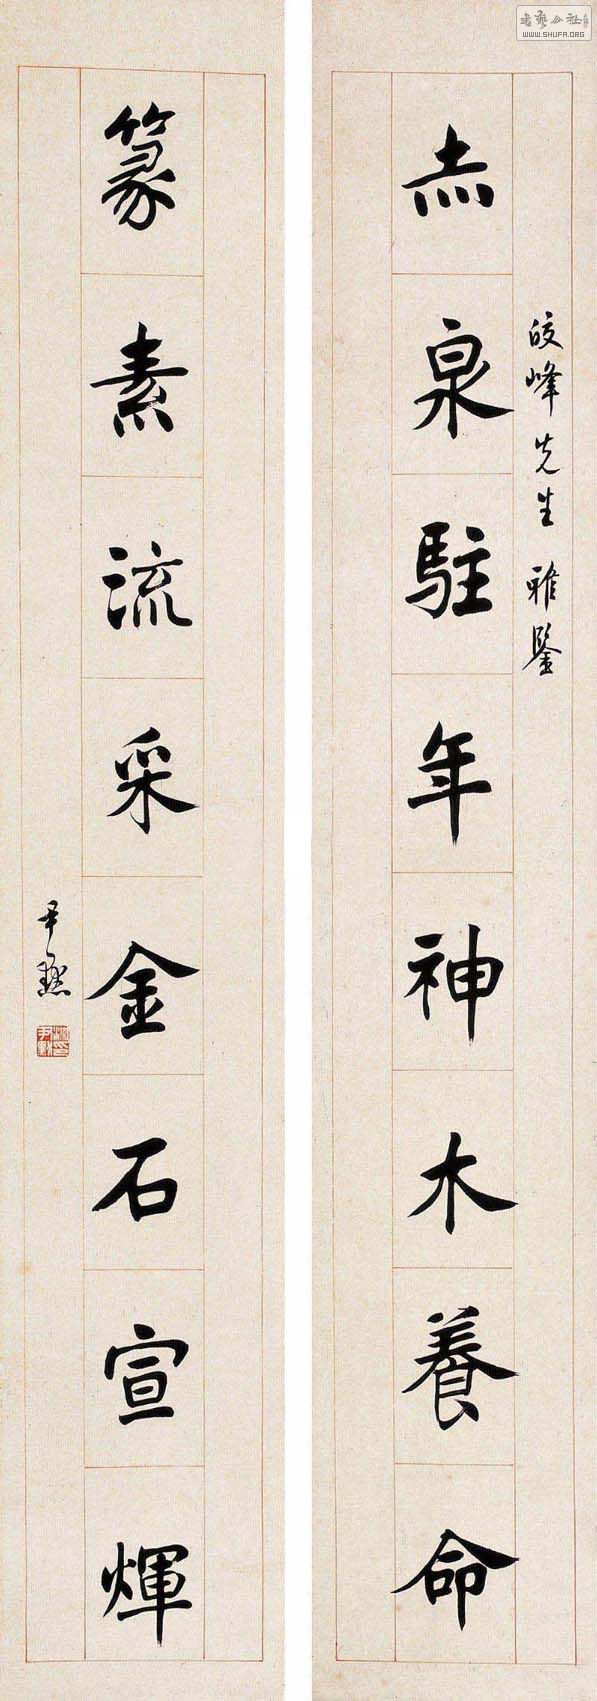 皎峰先生雅鑒
赤泉駐年神木養命
篆素流采金石宣輝
尹默
書藝公社
WWW.SHUFA.ORG